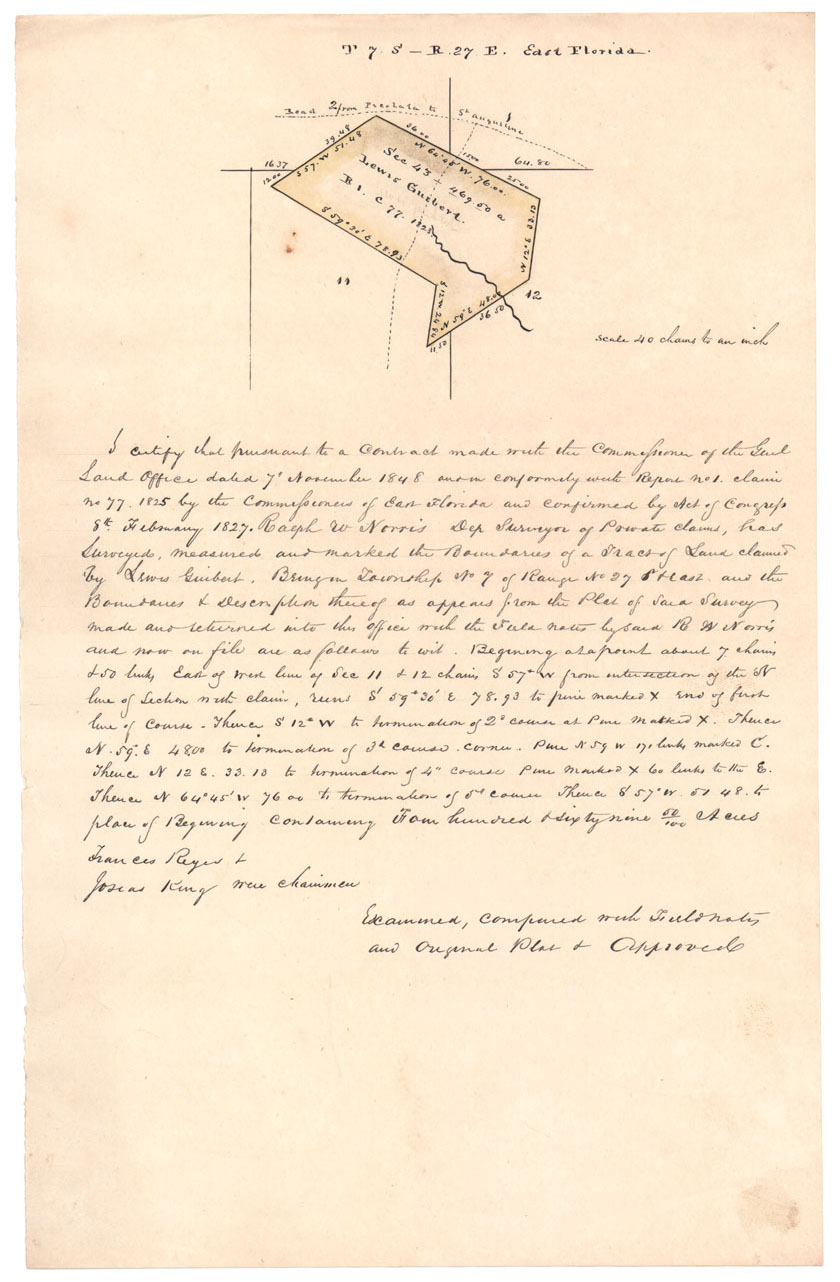 T 7 S – R. 27 E. East Florida.
Road from Picolata to St Augustine
2
1
39.48
S 57. W 51.48
36 00
N 64°45' W. 76.00.
15 00
25 00
64.80
16 37
12 00
Sec 43 – 469.50 a
Lewis Guibert.
R 1. C 77. 1825
S 59° 30' E 78.93
11
12
N 59° E 48.00
36 50
11.50
scale 40 chains to an inch
I certify that pursuant to a Contract made with the Commissioner of the Genl
Land Office dated 7th November 1848 and in conformity with Report No 1. claim
no 77. 1825 by the Commissioners of East Florida and confirmed by Act of Congress
8th February 1827. Ralph W Norris Dep Surveyor of Private claims, has
Surveyed, measured and marked the Boundaries of a Tract of Land claimed
by Lewis Guibert. Being in Township No 7 of Range No 27 S & East. and the
Boundaries & Description thereof as appears from the Plat of said Survey
made and returned into this office with the Field notes by said R W Norris
and now on file are as follows to wit. Begining at a point about 7 chains
& 50 links East of West line of Sec 11 & 12 chains S 57° W from intersection of the N
line of Section with claim, runs S 59° 30' E 78.93 to pine marked X End of first
line of Course – Thence S 12° W to termination of 2d course at Pine marked X. Thence
N. 59° E 48.00 to termination of 3d course. corner. Pine N 59 W 17 links marked C.
Thence N 12 E. 33.13 to termination of 4th course Pine marked X 60 links to the E.
Thence N 64° 45' W 76 00 to termination of 5th course Thence S 57° W. 51 48. to
place of Begining Containing Four hundred & sixty nine 50/100 Acres
Frances Reyes &
Josias King were chainmen
Examined, compared with Field notes
and Original Plat & Approved